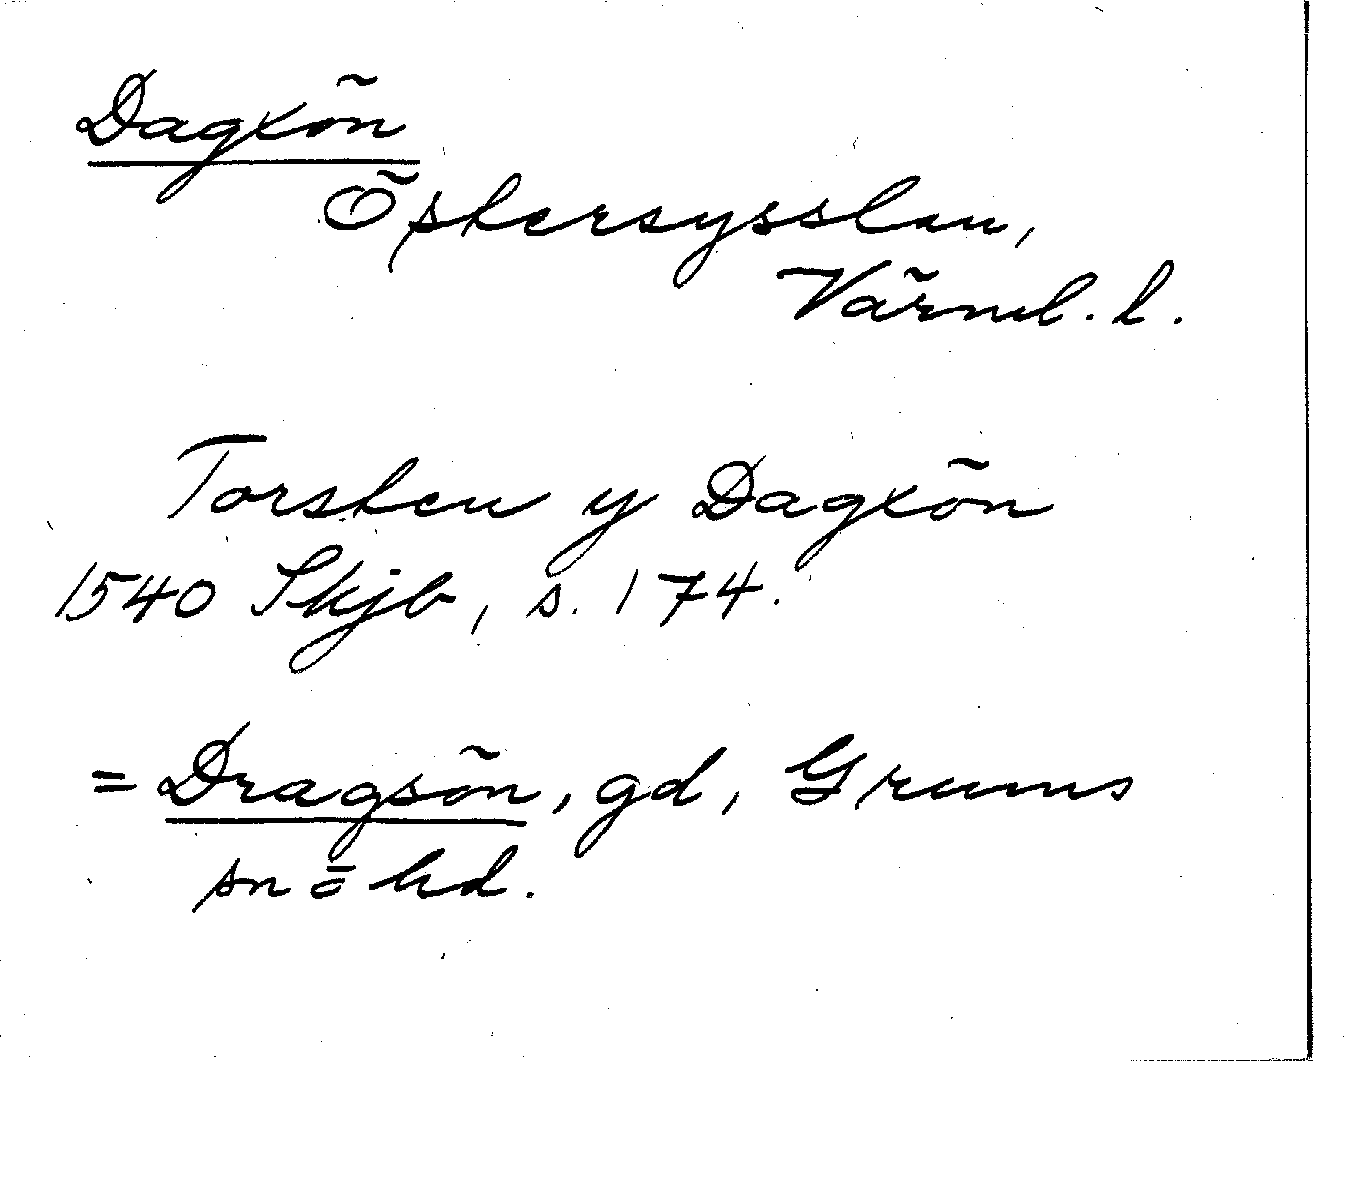 Dagxön
Östersysslan,
Värml. l.
Torsten y Dagxön
1540 Skjb, s. 174.
= Dragsön, gd, Grums
sn o hd.